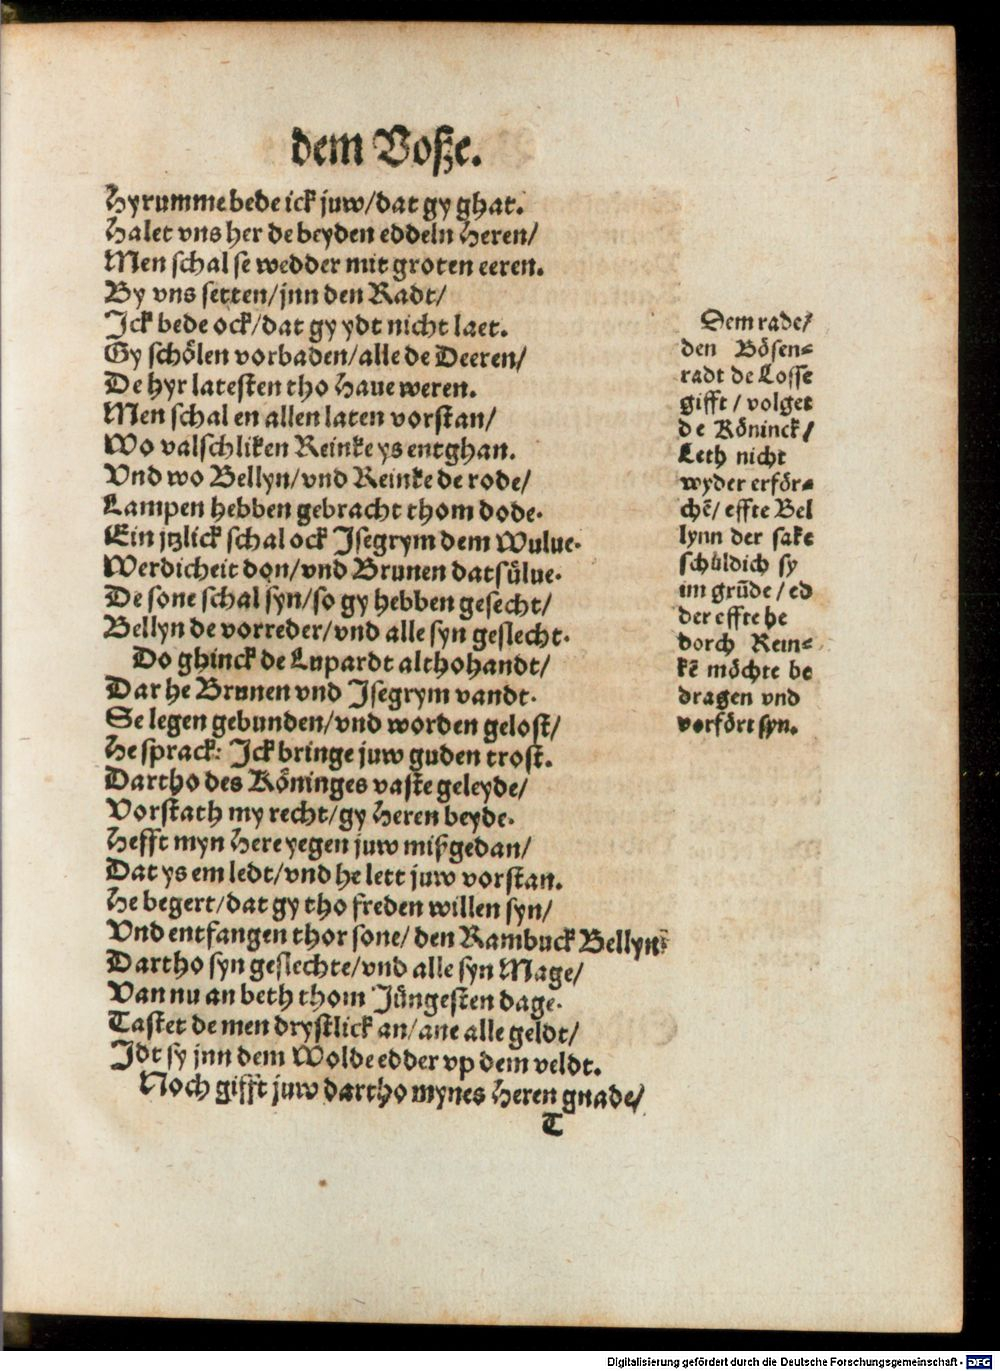 dem Voßze.
Hyrumme bede ick juw/dat gy ghat.
Halet vns her de beyden eddeln Heren/
Men schal se wedder mit groten eeren.
By vns setten/jnn den Radt/
Jck bede ock/dat gy ydt nicht laet.
Gy schölen vorbaden/alle de Deeren/
De hyr latesten tho Haue weren.
Men schal en allen laten vorstan/
Wo valschliken Reinke ys entghan.
Vnd wo Bellyn/vnd Reinke de rode/
Lampen hebben gebracht thom dode.
Ein jtzlick schal ock Jsegrym dem Wulue.
Werdicheit don/vnd Brunen datsülue.
De sone schal syn/so gy hebben gesecht/
Bellyn de vorreder/vnd alle syn geslecht.
Do ghinck de Lupardt althohandt/
Dar he Brunen vnd Jsegrym vandt.
Se legen gebunden/vnd worden gelost/
He sprack: Jck bringe juw guden trost.
Dartho des Köninges vaste geleyde/
Vorstath my recht/gy Heren beyde.
Hefft myn Here yegen juw mißgedan/
Dat ys em ledt/vnd he lett juw vorstan.
He begert/dat gy tho freden willen syn/
Vnd entfangen thor sone/den Rambuck Bellyn:
Dartho syn geslechte/vnd alle syn Mage/
Van nu an beth thom Jüngesten dage.
Tastet de men drystlick an/ane alle geldt/
Jdt sy jnn dem Wolde edder vp dem veldt.
Noch gifft juw dartho mynes Heren gnade/
T
Dem rade/
den Bösen-
radt de Losse
gifft / volget
de Köninck/
Leth nicht
wyder erför-
chē/ effte Bel
lynn der sake
schüldich sy
im grūde / ed
der effte he
dorch Rein-
kē möchte be
dragen vnd
vorfört syn.
Digitalisierung gefördert durch die Deutsche Forschungsgemeinschaft - DFG